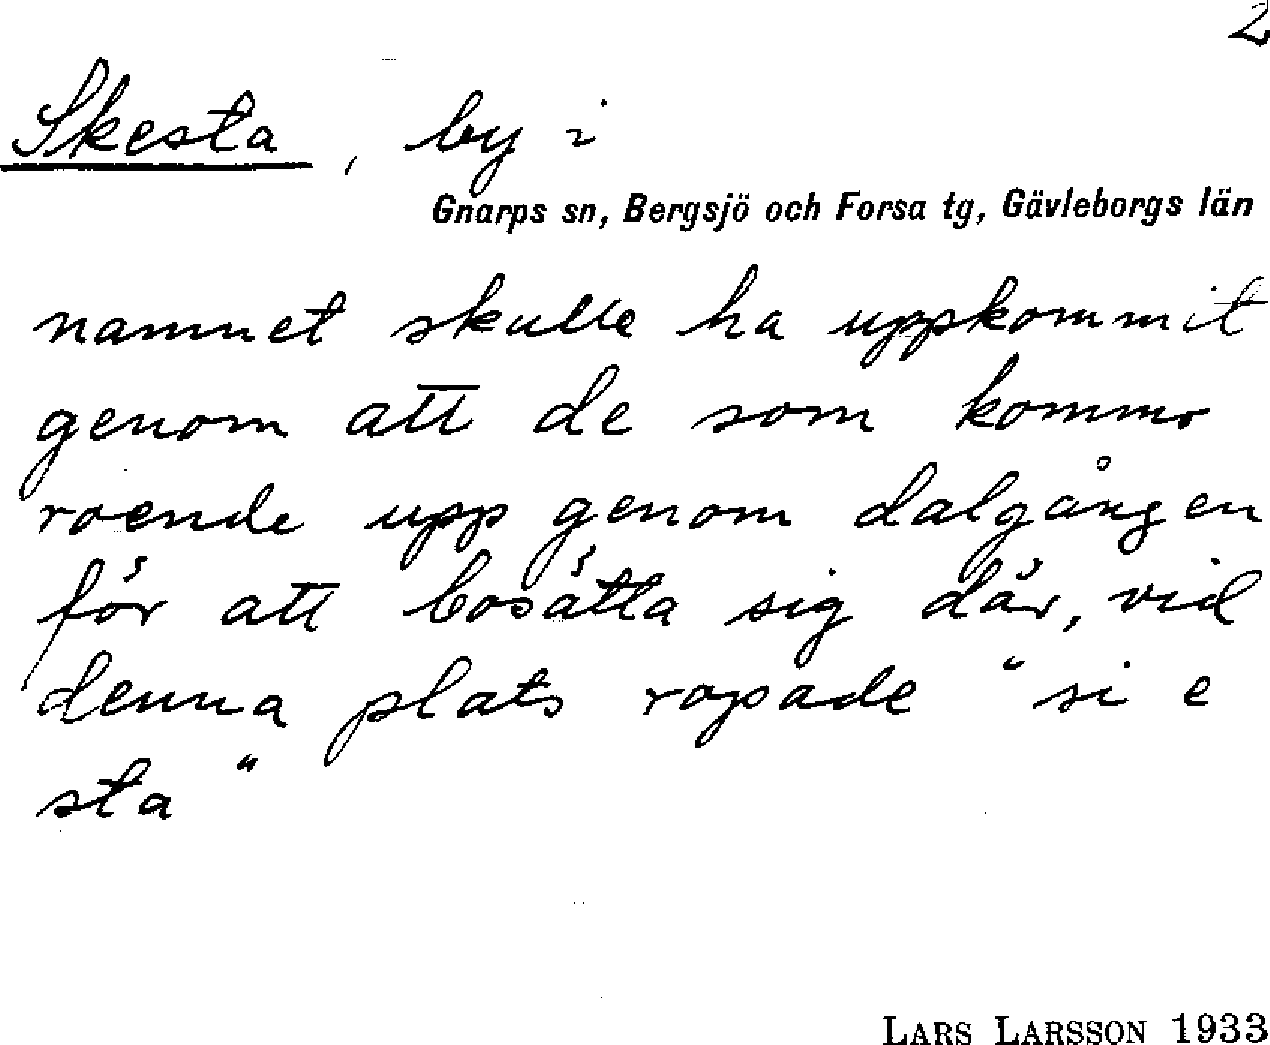 2
Skesta, by i
Gnarps sn, Bergsjö och Forsa tg, Gävleborgs län
namnet skulle ha uppkommit
genom att de som kommo
roende upp genom dalgången
för att bosätta sig där, vid
denna plats ropade "si e
sta"
LARS LARSSON 1933